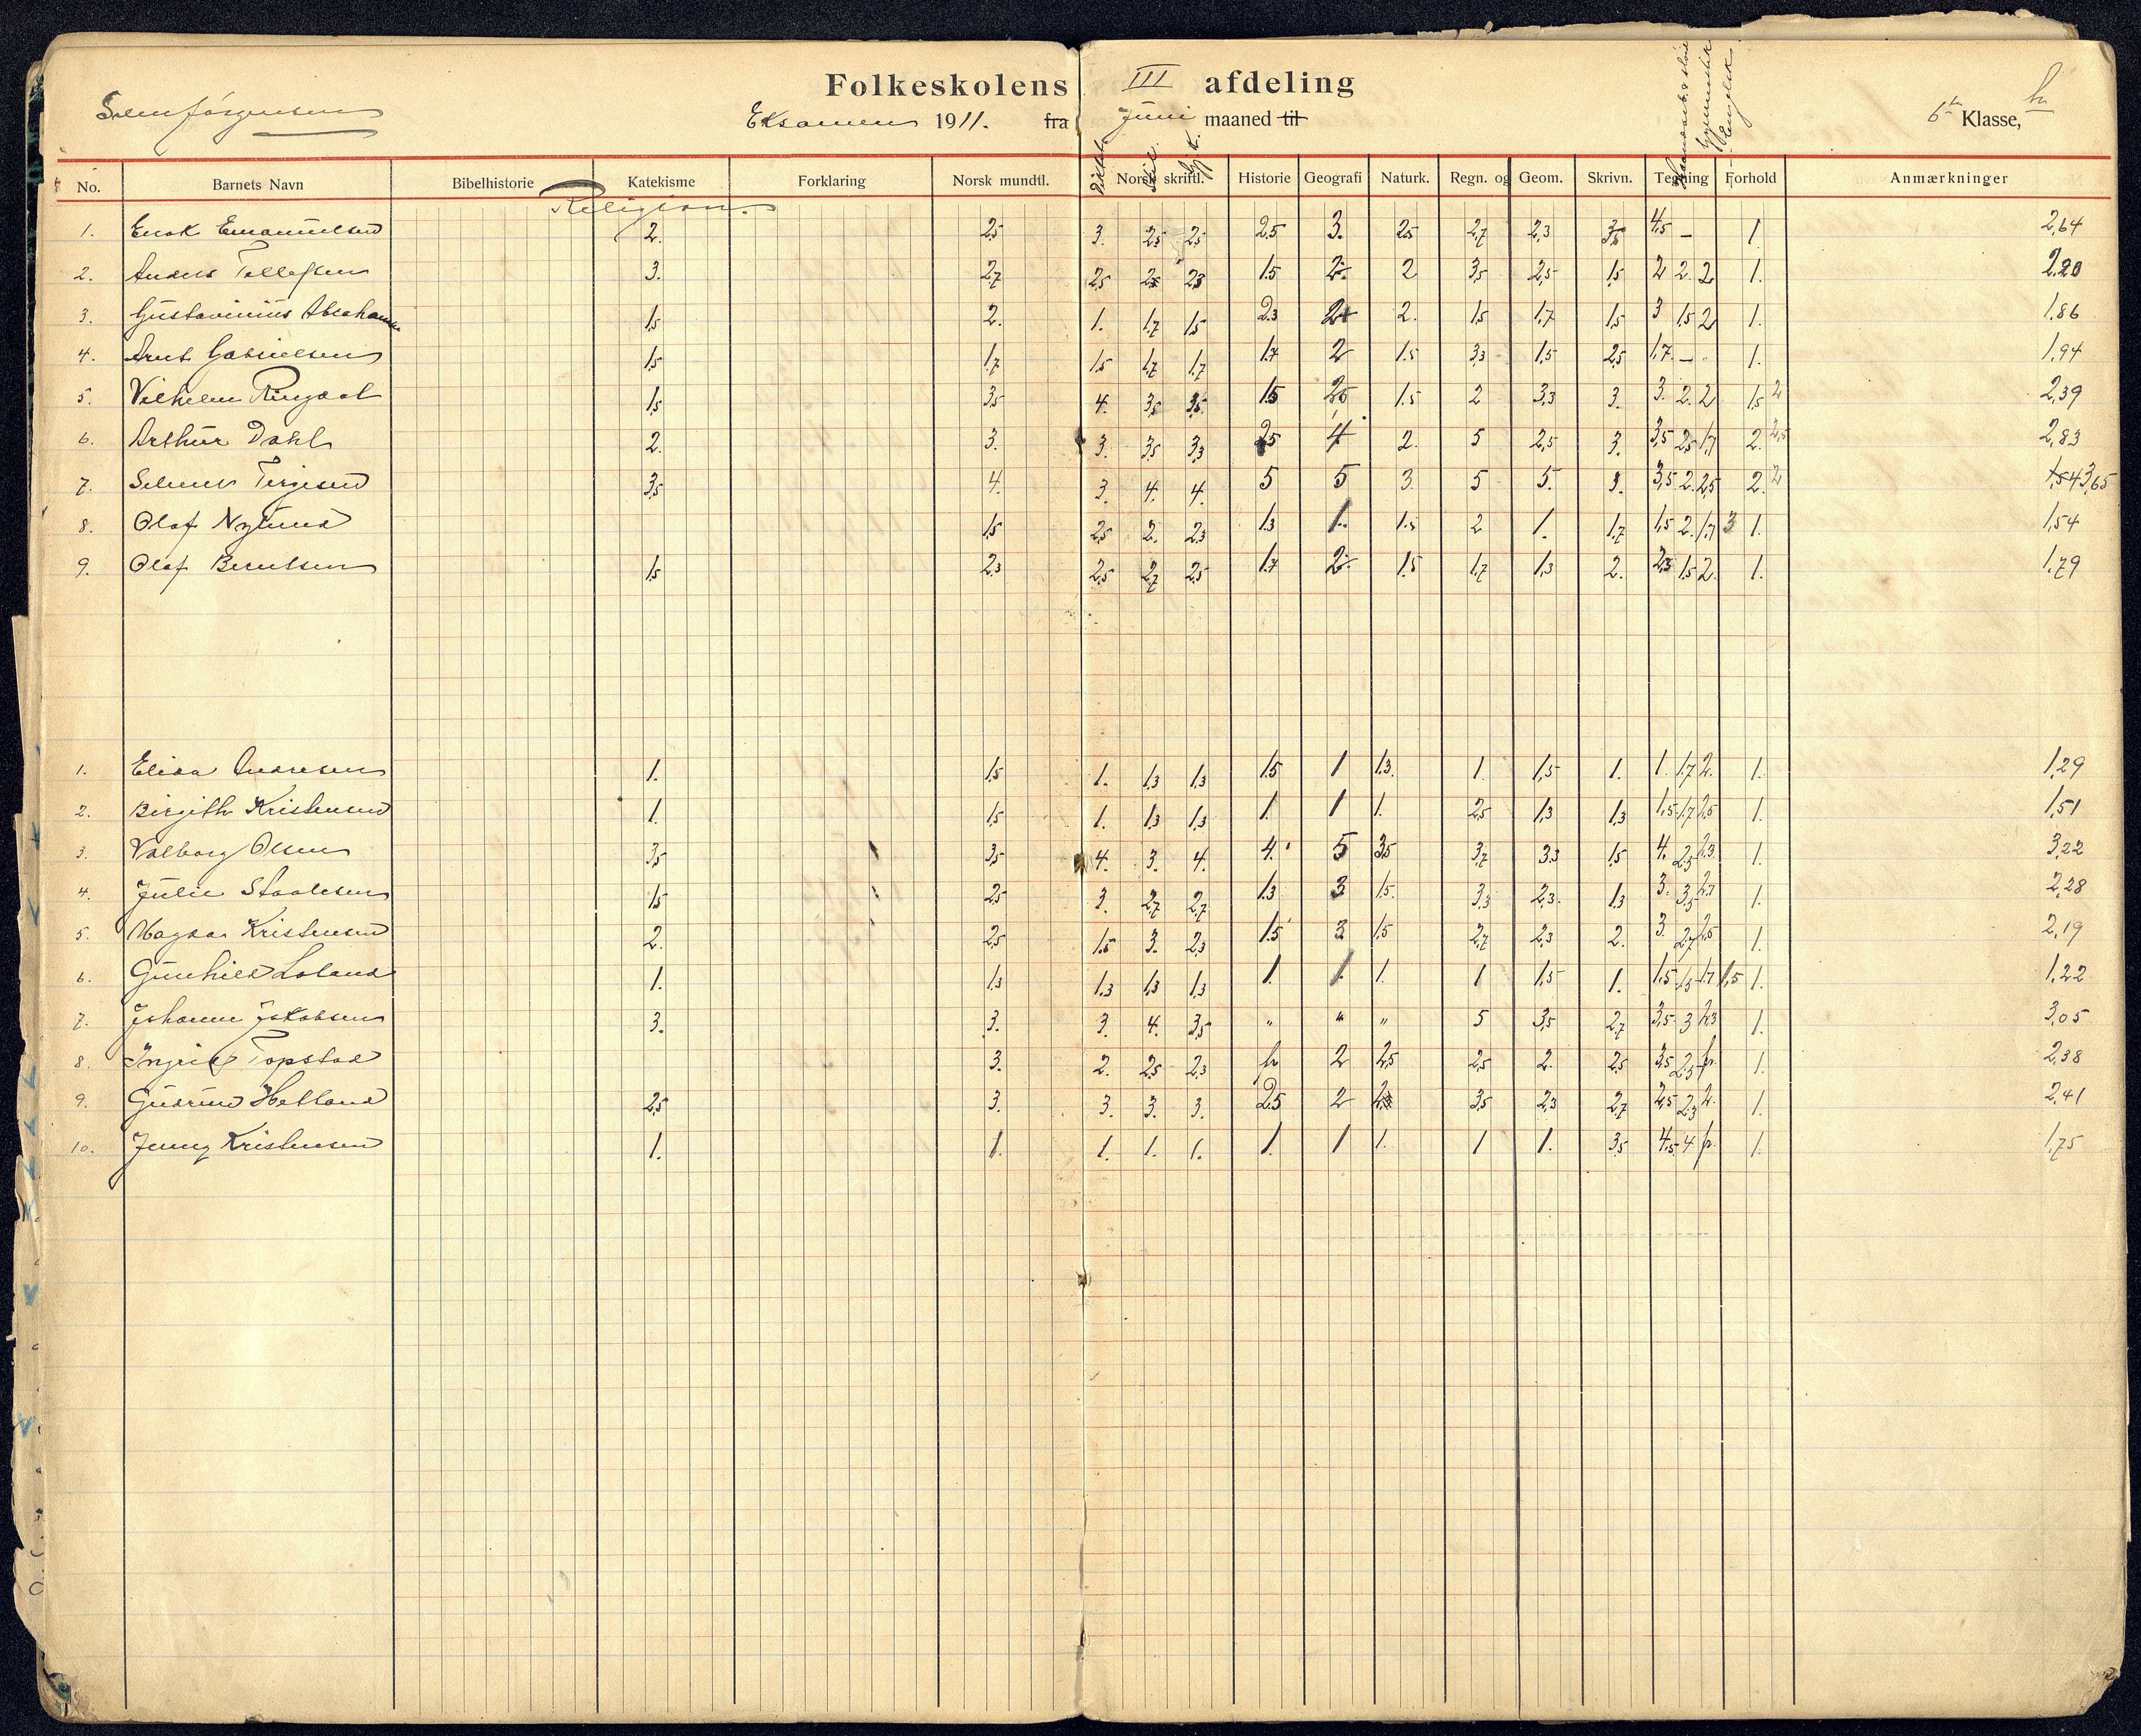 Folkeskolens III afdeling
Sven Jörgensen Eksamen 1911. fra Juni maaned til 6te Klasse, br
Diktat Stil Haandarb. & sløid Gymnastik Engelsk
No. Barnets Navn Bibelhistorie Katekisme Forklaring Norsk mundtl. Norsk skriftl. Historie Geografi Naturk. Regn. og Geom. Skrivn. Tegning Forhold Anmærkninger
Religion.
1. Enok Emanuelsen 2. 2,5 3. 2,5 2,5 2.5 3. 2,5 2,7 2,3 4,5 – 1. 2,64
2. Anders Tellefsen 3. 2,7 2,5 2,3 1.5 2 3,5 2,5 1,5 2 2. 2 1. 2,20
3. Gustavinius Abraham 1,5 2. 1. 1,7 1,5 2.3 2. 1,5 1,7 1,5 3 1,5 2 1. 1,86
4. Arnt Gabrielsen 1,5 1,7 1,5 1,7 1,7 1.7 2 1.5 3,3 1,5 2,5 1,7. – 1. 1,94
5. Vilhelm Ringdal 1,5 3,5 4. 3,5 3,5 1.5 1.5 2 3,3 3. 3. 2. 2 1,5 2 2,39
6. Arthur Dahl 2. 3. 3. 3,5 3,3 2.5 4 2. 5 2,5 3. 3,5 2,5 1,7 2. 2,5 2,83
7. Selmer Terjesen 3,5 4. 3. 4. 4. 5 5 3. 5 5. 3. 3,5 2. 2,5 2. 2 1,54 3,65
8. Olaf Nylund 1,5 2,5 2. 2,3 1.3 1. 1.5 2 1. 1,7 1,5 2. 1,7 3 1. 1,54
9. Olaf Berntsen 1,5 2,3 2,5 2,7 2,5 1.7 2 1.5 1,7 1,3 2. 2,3 1,5 2. 1. 1,79
1. Elisa Andresen 1. 1,5 1. 1,3 1,3 1.5 1 1.3. 1 1,5 1. 1. 1,7 2. 1. 1,29
2. Birgith Kristensen 1. 1,5 1. 1,3 1,3 1. 1 1. 2,5 1,3 1,3 1,5 1,7 2,5 1. 1,51
3. Valborg Olsen 3,5 3,5 4. 3. 4. 4. 5 3.5 3,7 3.3 1,5 4. 2,3 2.3 1. 3,22
4. Julie Staalesen 1,5 2,5 3. 2,7 2,7 1.3 3 1.5. 3,3 2,3. 1,3 3. 3,5 2,7 1. 2,28
5. Magda Kristensen 2. 2,5 1.5 3. 2,3 1.5 3 1.5 2,7 2,3 2. 3. 2,7 2,5 1. 2,19
6. Gunhild Loland 1. 1,3 1.3 1,3 1,3 1. 1. 1. 1 1,5 1. 1.5 1,5 1.7 1,5 1. 1,22
7. Johanne Jakobsen 3. 3. 3. 4. 3,5 " " " 5 3,5 2,7 3,5 3 2,3 1. 3,05
8. Ingrid Topstad 3. 2. 2,5 2,3 fr 2 2.5 2,5 2. 2,5 3,5 2,3 fr. 1. 2,38
9. Gudrun Hetland 2,5 3. 3. 3. 3. 2.5 2 3,5 2,3 2,7 2,5 2,3 2. 1. 2,41
10. Jenny Kristensen 1. 1. 1. 1. 1. 1. 1 1. 1 1. 3,5 4,5 4 fr. 1. 1,75